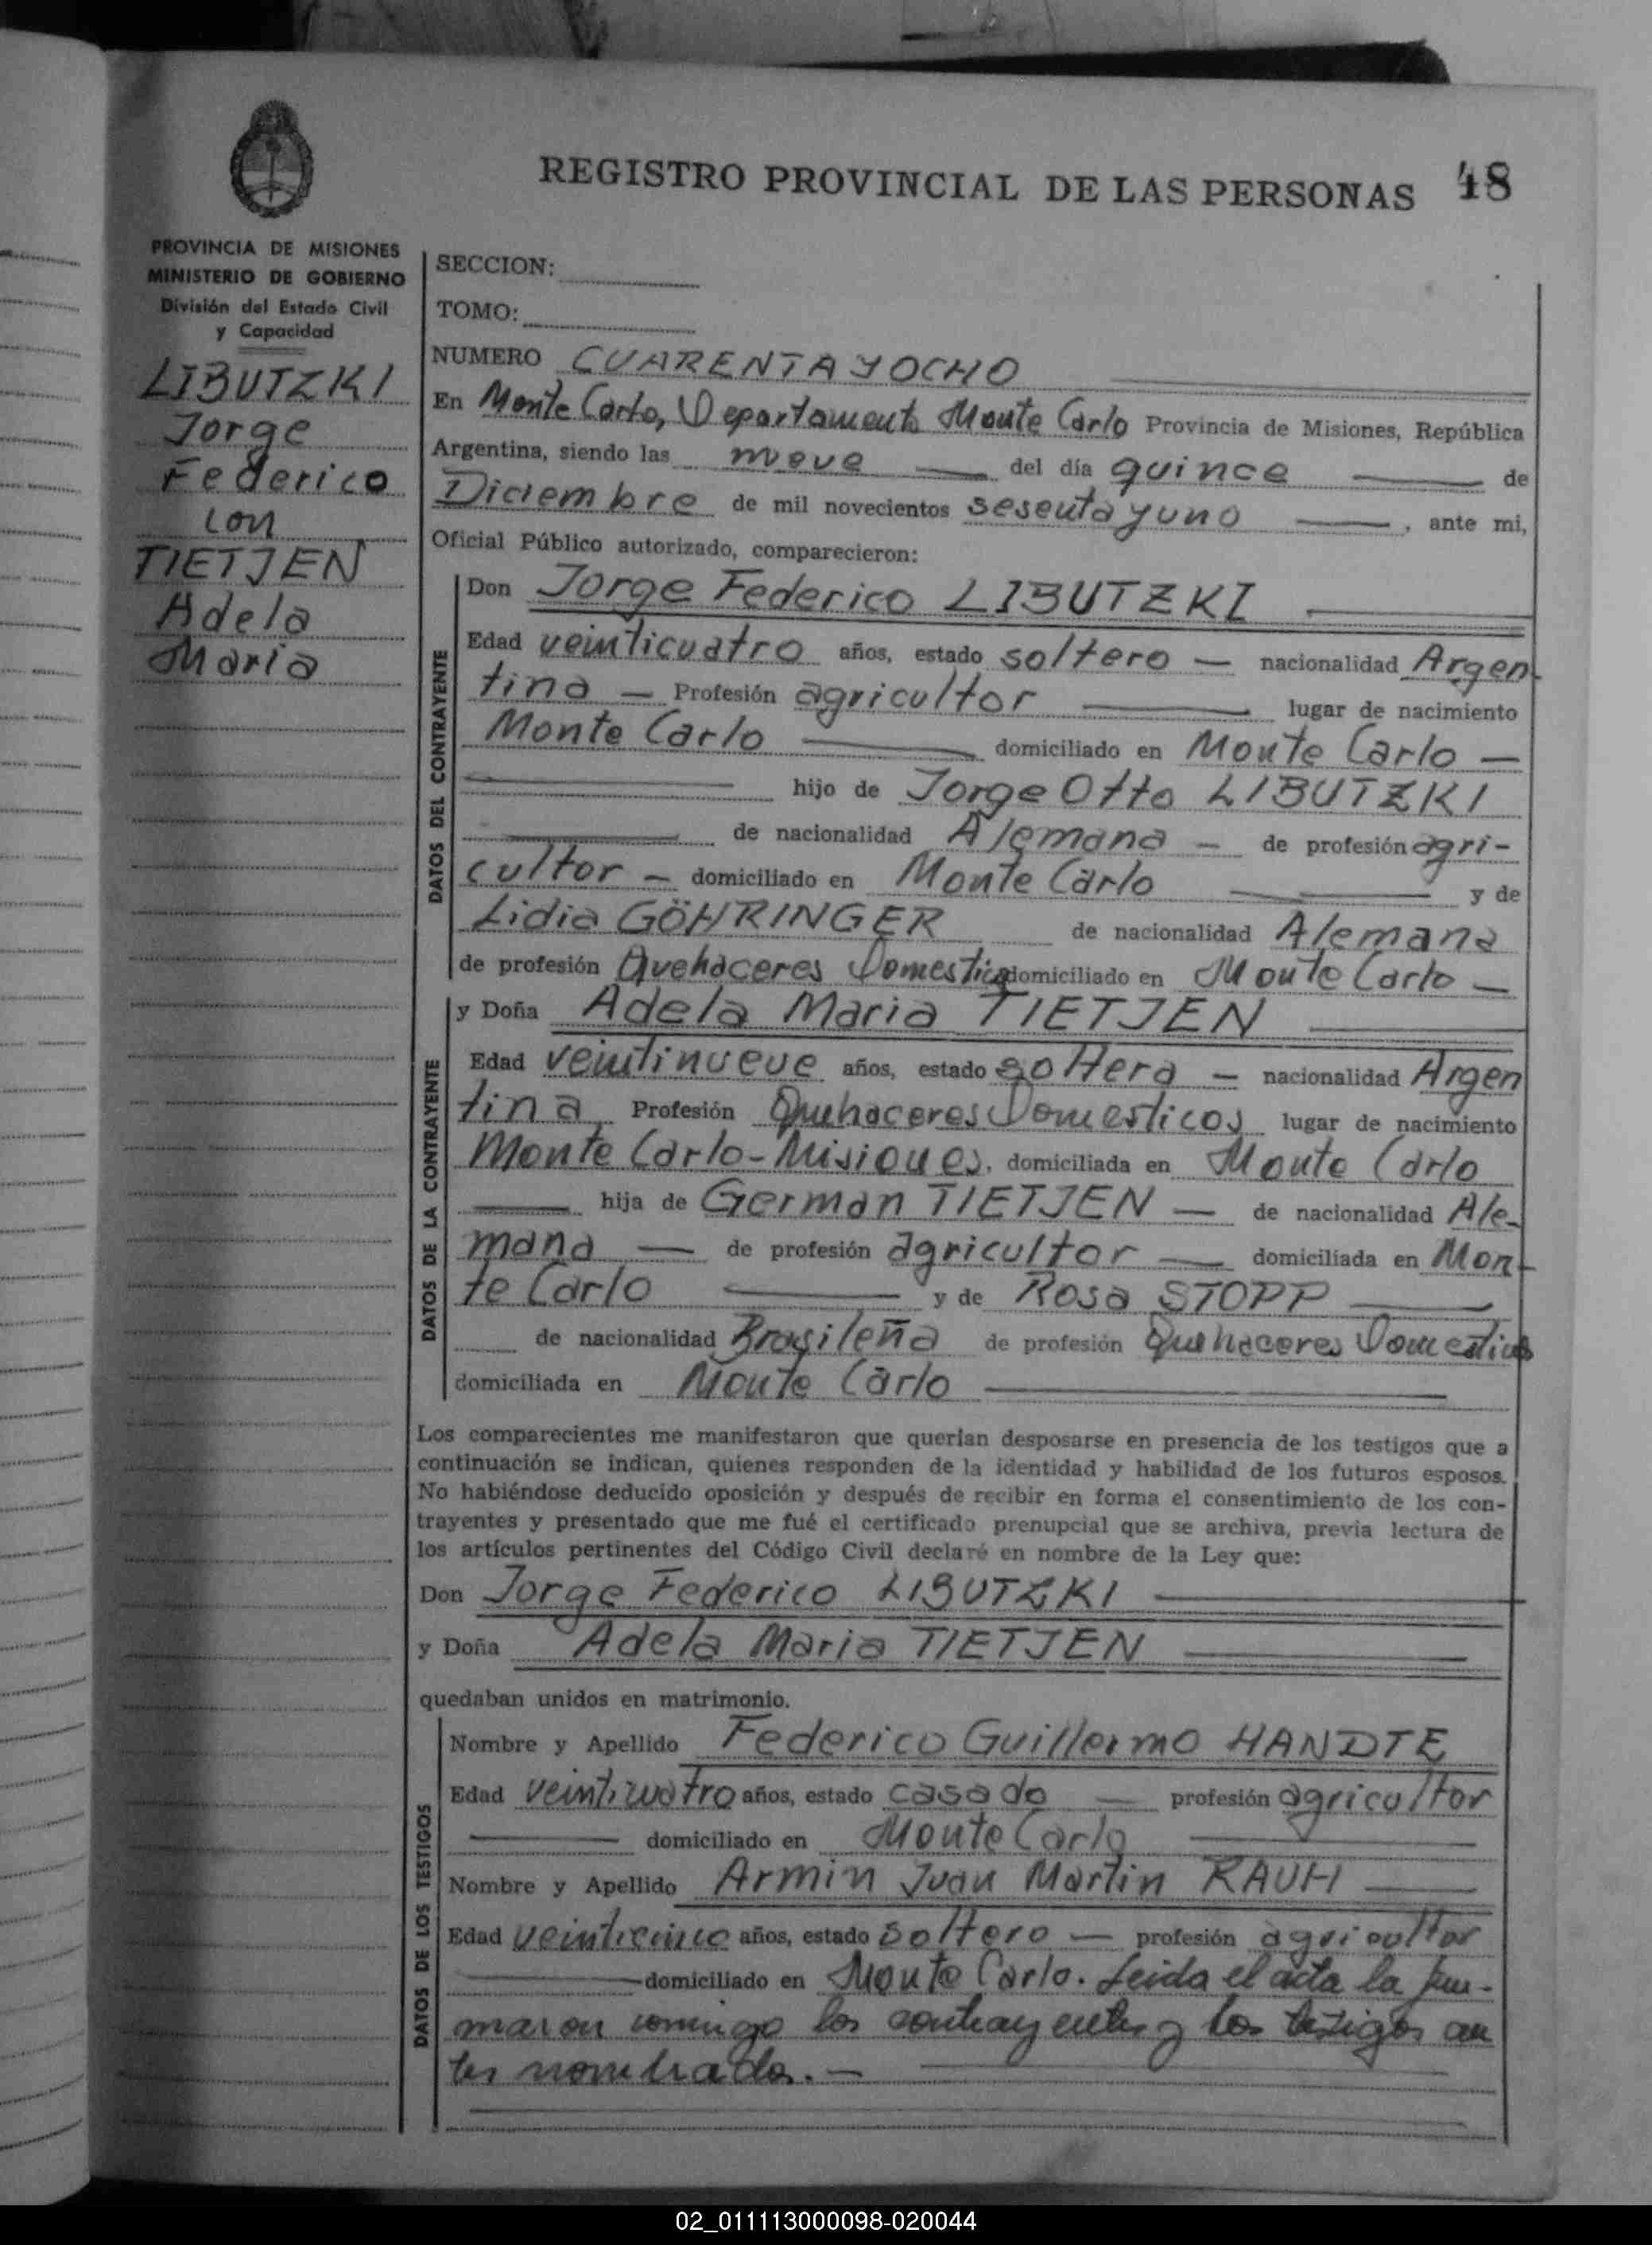 REGISTRO PROVINCIAL DE LAS PERSONAS 48
PROVINCIA DE MISIONES
MINISTERIO DE GOBIERNO
División del Estado Civil
y Capacidad
LIBUTZKI
Jorge
Federico
con
TIETJEN
Adela
Maria
SECCION:
TOMO:
NUMERO CUARENTA Y OCHO
En Monte Carlo, Departamento Monte Carlo Provincia de Misiones, República
Argentina, siendo las nueve del día quince de
Diciembre de mil novecientos sesenta y uno , ante mi,
Oficial Público autorizado, comparecieron:
DATOS DEL CONTRAYENTE
Don Jorge Federico LIBUTZKI
Edad veinticuatro años, estado soltero — nacionalidad Argen
tina — Profesión agricultor lugar de nacimiento
Monte Carlo domiciliado en Monte Carlo —
hijo de Jorge Otto LIBUTZKI
de nacionalidad Alemana — de profesión agri-
cultor — domiciliado en Monte Carlo y de
Lidia GÖHRINGER de nacionalidad Alemana
de profesión Quehaceres Domesticos domiciliado en Monte Carlo —
DATOS DE LA CONTRAYENTE
y Doña Adela Maria TIETJEN
Edad veintinueve años, estado soltera — nacionalidad Argen
tina Profesión Quehaceres Domesticos lugar de nacimiento
Monte Carlo-Misiones, domiciliada en Monte Carlo
hija de German TIETJEN — de nacionalidad Ale-
mana — de profesión agricultor — domiciliada en Mon-
te Carlo y de Rosa STOPP
de nacionalidad Brasileña de profesión Quehaceres Domesticos
domiciliada en Monte Carlo
Los comparecientes me manifestaron que querían desposarse en presencia de los testigos que a
continuación se indican, quienes responden de la identidad y habilidad de los futuros esposos.
No habiéndose deducido oposición y después de recibir en forma el consentimiento de los con-
trayentes y presentado que me fué el certificado prenupcial que se archiva, previa lectura de
los artículos pertinentes del Código Civil declaré en nombre de la Ley que:
Don Jorge Federico LIBUTZKI
y Doña Adela Maria TIETJEN
quedaban unidos en matrimonio.
DATOS DE LOS TESTIGOS
Nombre y Apellido Federico Guillermo HANDTE
Edad veinticuatro años, estado casado — profesión agricultor
domiciliado en Monte Carlo
Nombre y Apellido Armin Juan Martin RAUH
Edad veinticinco años, estado soltero — profesión agricultor
domiciliado en Monte Carlo. Leida el acta la fir-
maron conmigo los contrayentes y los testigos an
tes nombrados. —
02_011113000098-020044